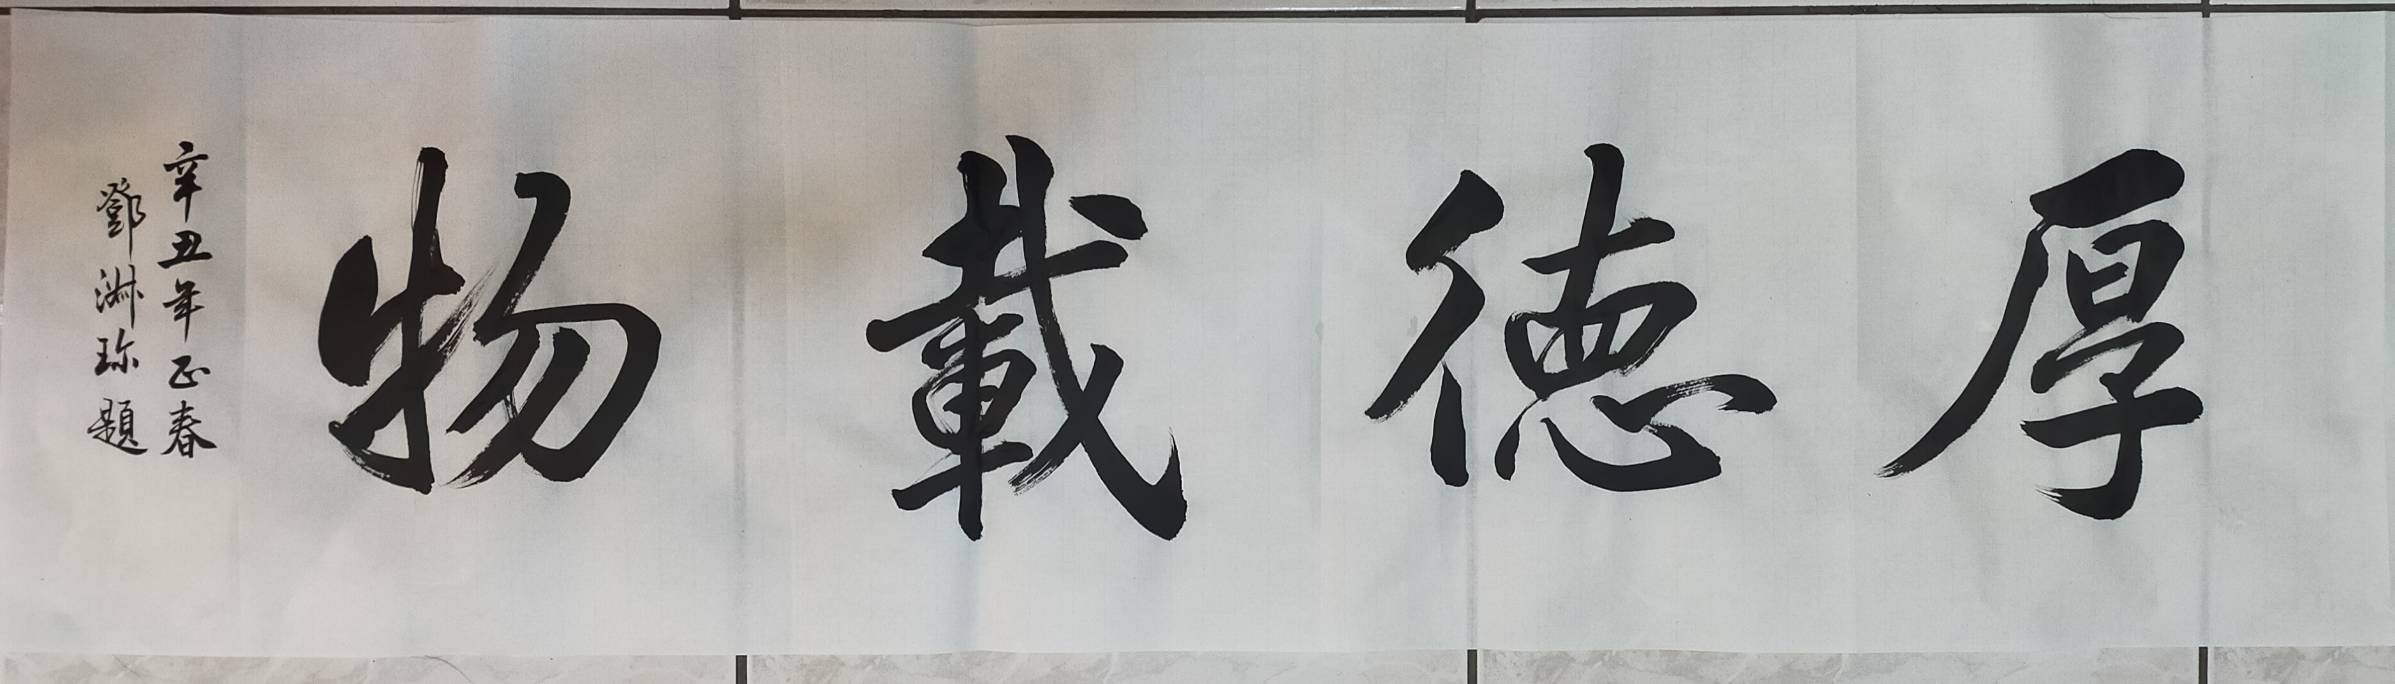 厚德載物
辛丑年正春
鄧淋珎題